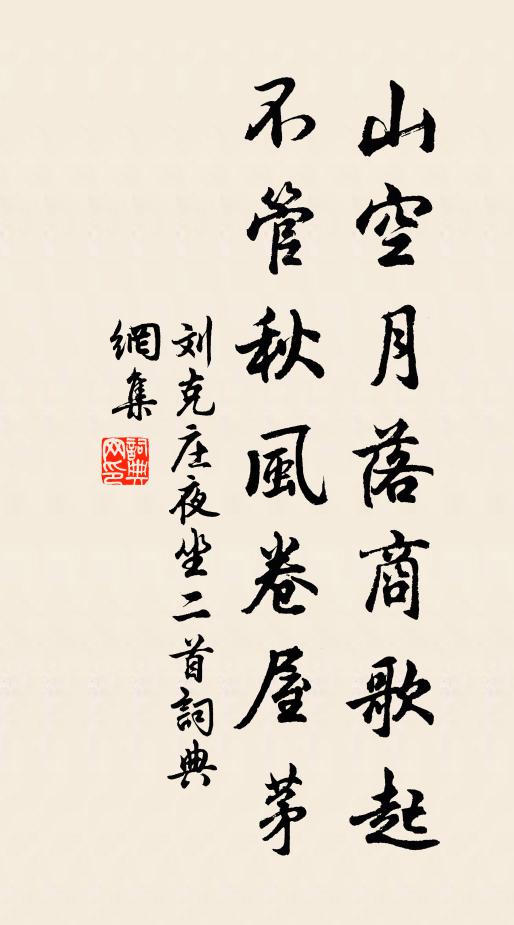 山空月落商歌起
不管秋風卷屋茅
刘克庄夜坐二首詞典
網集
詞典
网印